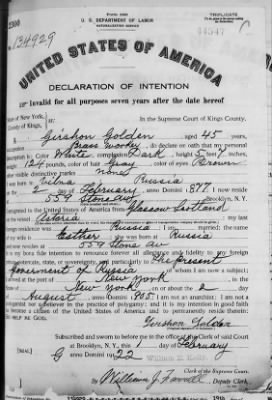 Form 2203
U. S. DEPARTMENT OF LABOR
NATURALIZATION SERVICE
TRIPLICATE
No. 134929
UNITED STATES OF AMERICA
DECLARATION OF INTENTION
Invalid for all purposes seven years after the date hereof
State of New York,
County of Kings,
In the Supreme Court of Kings County.
I, Gershon Golden, aged 45 years,
occupation Brass worker, do declare on oath that my personal
description is: Color White, complexion Dark, height 5 feet 7 inches,
124 pounds, color of hair Gray, color of eyes Brown
other visible distinctive marks none
I was born in Vilna Russia
on the 2 day of February, anno Domini 1877; I now reside
at 559 Stone Av Brooklyn, N. Y.
I emigrated to the United States of America from Glasgow Scotland
on the vessel Astoria; my last
foreign residence was Russia; I am married; the name
of my wife is Esther; she was born at Russia
and now resides at 559 Stone Av
It is my bona fide intention to renounce forever all allegiance and fidelity to any foreign
prince, potentate, state, or sovereignty, and particularly to The present
Government of Russia, of whom I am now a subject;
I arrived at the port of New York, in the
State of New York, on or about the 2 day
of August, anno Domini 1905; I am not an anarchist; I am not a
polygamist nor a believer in the practice of polygamy; and it is my intention in good faith
to become a citizen of the United States of America and to permanently reside therein:
SO HELP ME GOD.
Gershon Golden
Subscribed and sworn to before me in the office of the Clerk of said Court
at Brooklyn, N. Y., this 1 day of February
[SEAL] anno Domini 1922
Clerk of the Supreme Court.
By William J. Farrell, Deputy Clerk